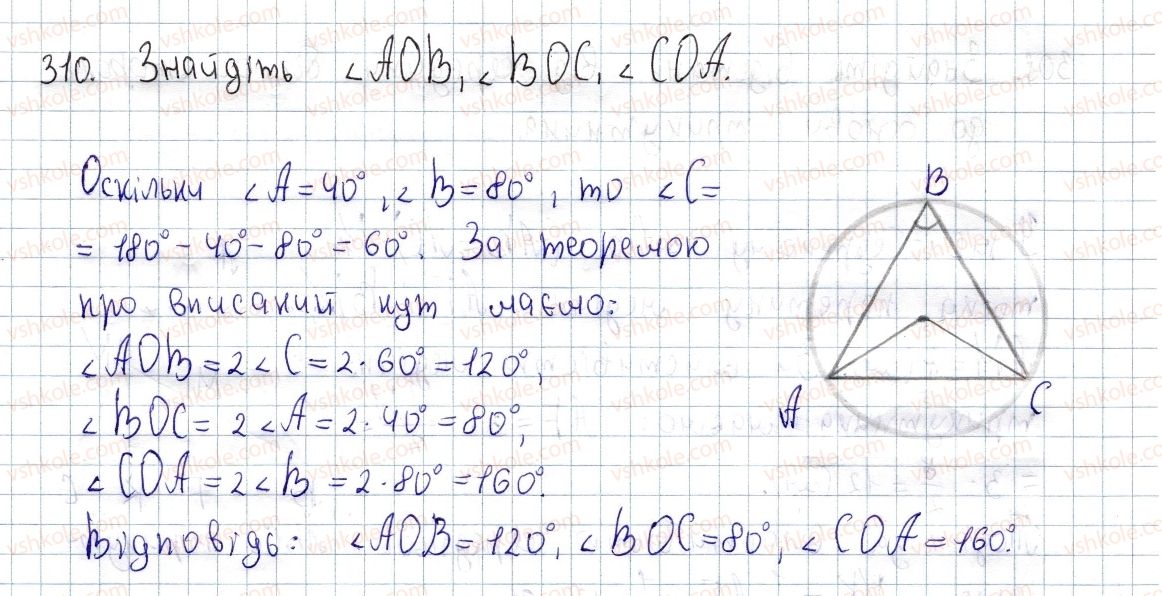 310. Знайдіть ∠AOB, ∠BOC, ∠COA.
Оскільки ∠A = 40°, ∠B = 80°, то ∠C =
= 180° - 40° - 80° = 60°. За теоремою
про вписаний кут маємо:
∠AOB = 2∠C = 2·60° = 120°,
∠BOC = 2∠A = 2·40° = 80°,
∠COA = 2∠B = 2·80° = 160°.
Відповідь: ∠AOB = 120°, ∠BOC = 80°, ∠COA = 160°.
B
A
C
vshkole.com